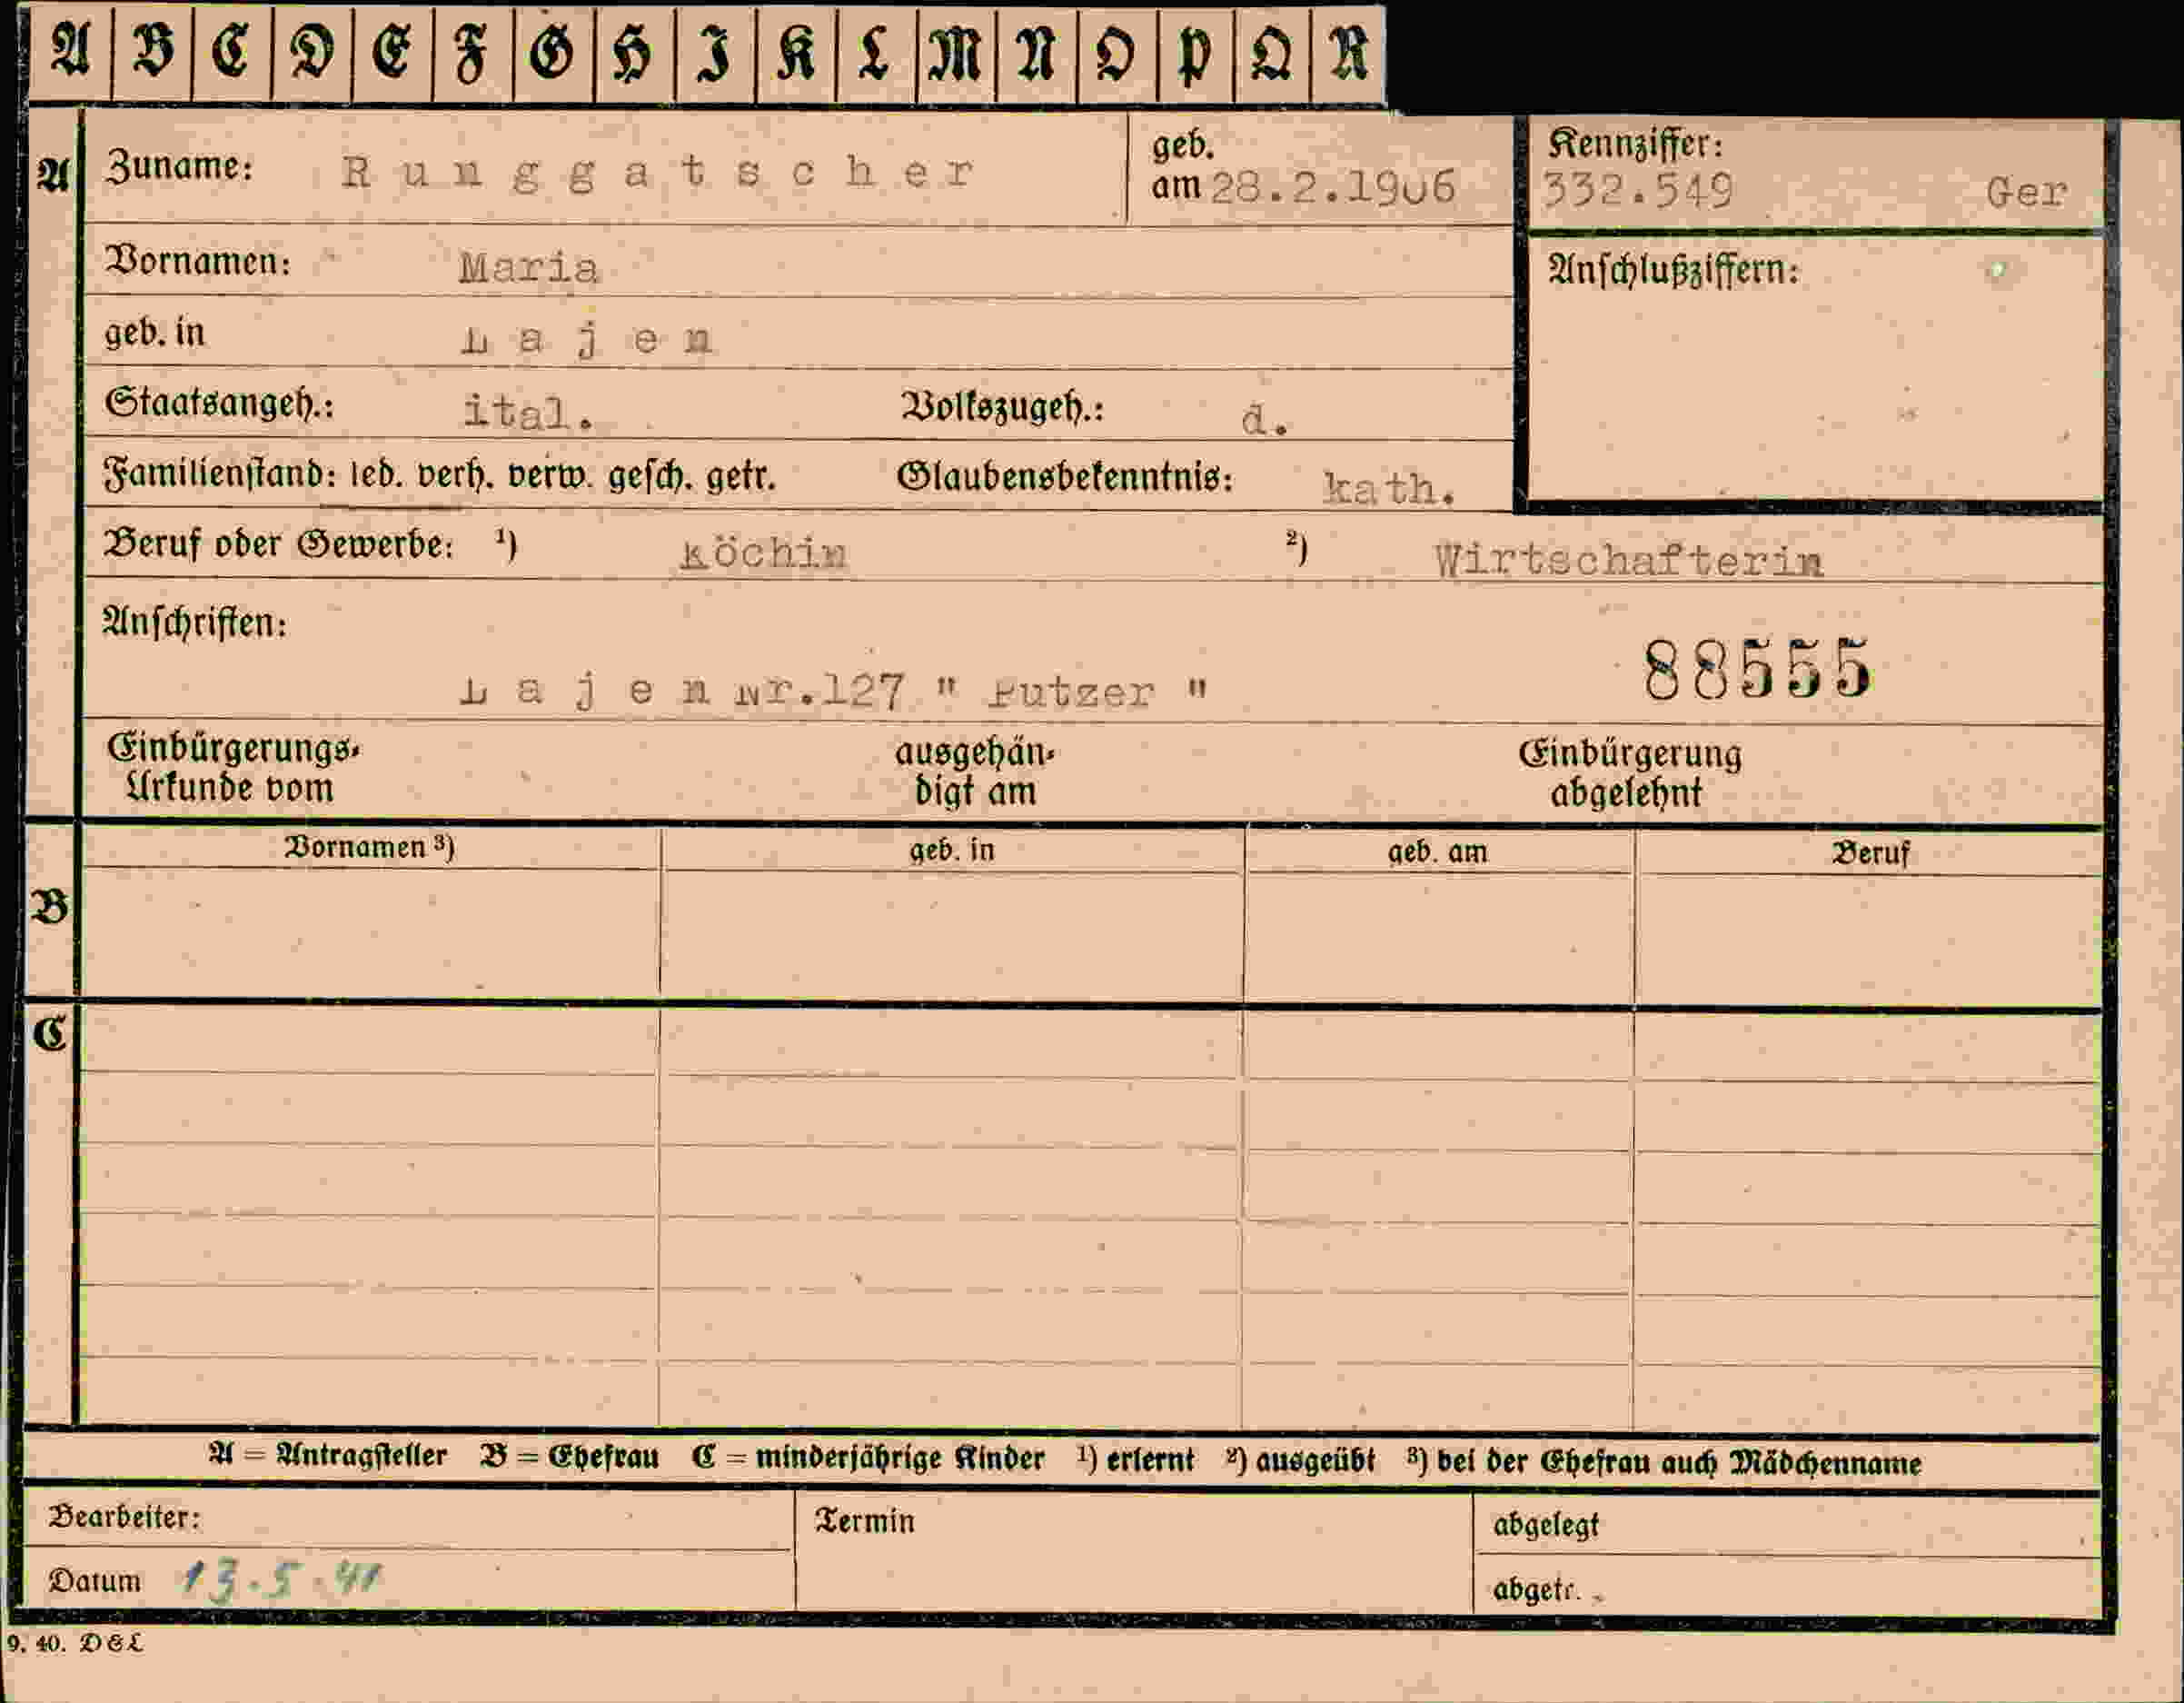 A B C D E F G H I K L M N O P Q R
A Zuname: Runggatscher geb. am 28.2.1906 Kennziffer: 332.549 Ger
Vornamen: Maria Anschlußziffern:
geb. in Lajen
Staatsangeh.: ital. Volkszugeh.: d.
Familienstand: led. verh. verw. gesch. getr. Glaubensbekenntnis: kath.
Beruf oder Gewerbe: ¹) Köchin ²) Wirtschafterin
Anschriften:
88555
Lajen Nr.127 " Putzer "
Einbürgerungs- ausgehän- Einbürgerung
Urkunde vom digt am abgelehnt
Vornamen ³) geb. in geb. am Beruf
B
C
A = Antragsteller B = Ehefrau C = minderjährige Kinder ¹) erlernt ²) ausgeübt ³) bei der Ehefrau auch Mädchenname
Bearbeiter: Termin abgelegt
Datum 13.5.41 abgetr.
9. 40. D&L